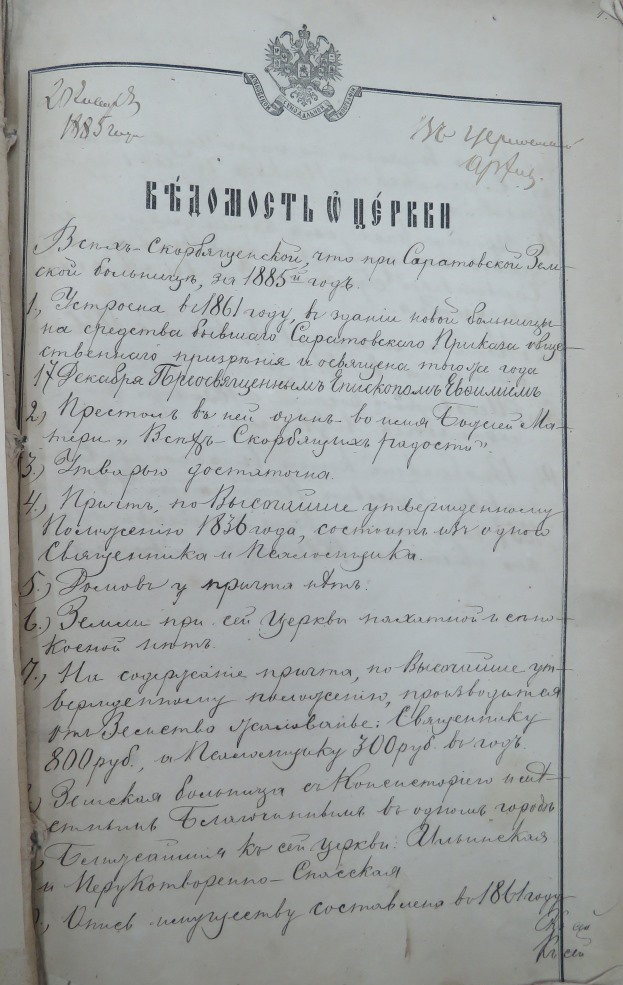 1885 года
Въ церковный
ВѢДОМОСТЬ Ѡ ЦЕ́РКВИ
Всѣхъ-Скорбященской, что при Саратовской Зем-
ской больницѣ, за 1885й годъ.
1., Устроена въ 1861 году, въ зданіи новой больницы
на средства бывшаго Саратовскаго Приказа обще
ственнаго призрѣнія и освящена того же года
17 Декабря Преосвященнымъ Епископомъ Евѳиміемъ
2., Престолъ въ ней одинъ во имя Божіей Ма-
тери „Всѣхъ-Скорбящихъ радости".
3.) Утварью достаточна.
4., Причтъ, по Высочайше утвержденному
Положенію 1836 года, состоитъ изъ одного
Священника и Псаломщика.
5.) Домовъ у причта нѣтъ.
6.) Земли при сей церкви пахатной и сѣно-
косной нѣтъ.
7., На содержаніе причта, по Высочайше ут-
вержденному положенію, производится
отъ Земства жалованье: Священнику
800 руб., а Псаломщику 300 руб. въ годъ.
Земская больница съ Консисторіею и мѣ-
стнымъ Благочиннымъ въ одномъ городѣ
Ближайшія къ сей церкви: Ильинская
и Нерукотворенно-Спасская
Опись имуществу составлена въ 1861 году